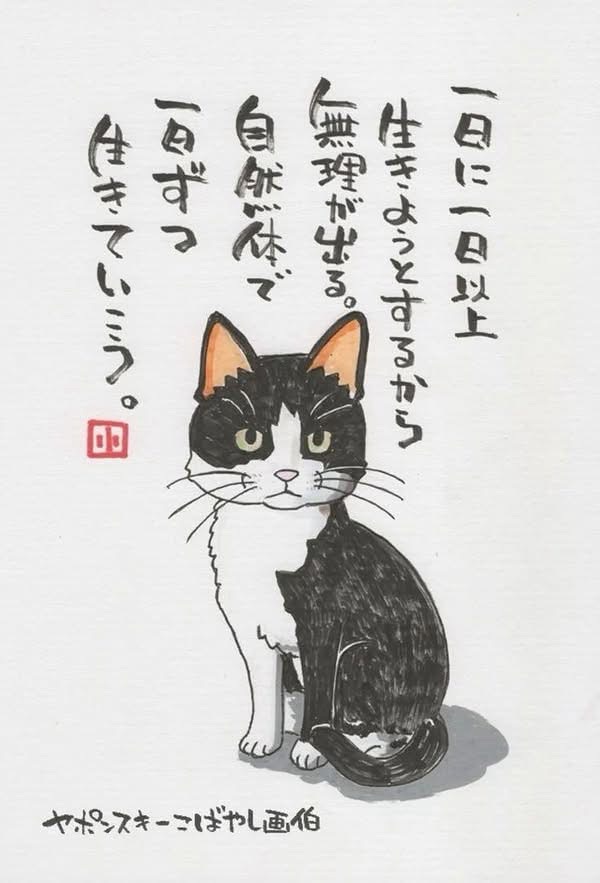 一日に一日以上
生きようとするから
無理が出る。
自然体で
一日ずつ
生きていこう。
小
ヤポンスキーこばやし画伯